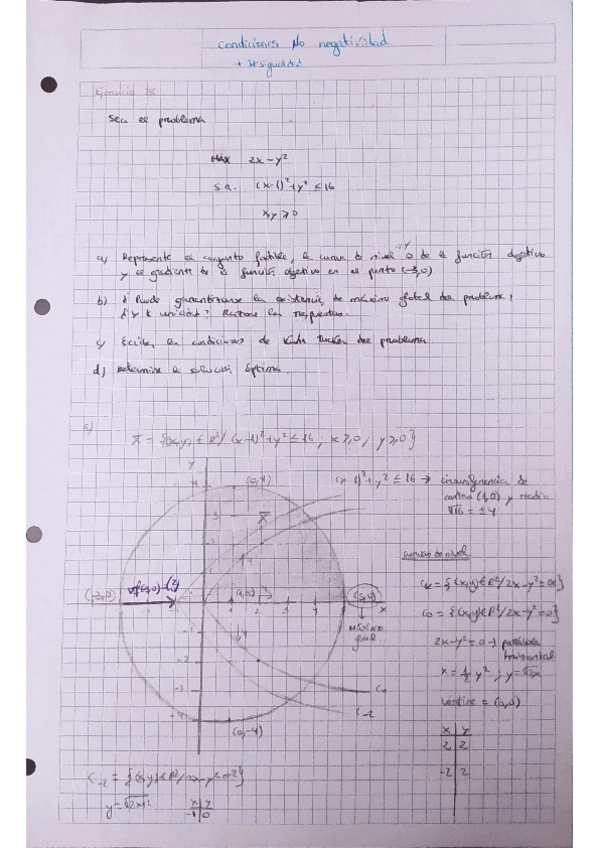 Condiciones No negatividad
+ Desigualdad
Ejercicio
Sea el problema
Máx 2x - y²
s.a. (x-1)² + y² ≤ 16
x,y ≥ 0
a) Represente el conjunto factible, la curva de nivel 0 de la función objetivo
y el gradiente de la función objetivo en el punto (-3,0)
b) ¿Puede garantizarse la existencia de máximo global del problema?
¿Y la unicidad? Razone las respuestas.
c) Escriba las condiciones de Kuhn Tucker del problema
d) Determine la solución óptima.
a)
X = {(x,y) ∈ R² / (x-1)² + y² ≤ 16 ; x ≥ 0 ; y ≥ 0}
y
(0,4)
(x-1)² + y² ≤ 16 → circunferencia de
centro (1,0) y radio
√16 = ± 4
curvas de nivel
∇f(-3,0) = (2
(-3,0)
(5,0)
x
Máximo
global
C₀ = {(x,y) ∈ R² / 2x - y² = 0}
2x - y² = 0 → parábola
horizontal
x = ½ y² ; y = √2x
vértice = (0,0)
C₀
C₋₂
(0,-4)
x y
2 2
-2 2
C₋₂ = {(x,y) ∈ R² / 2x - y² = -2}
y = √2x+2
x y
-1 0